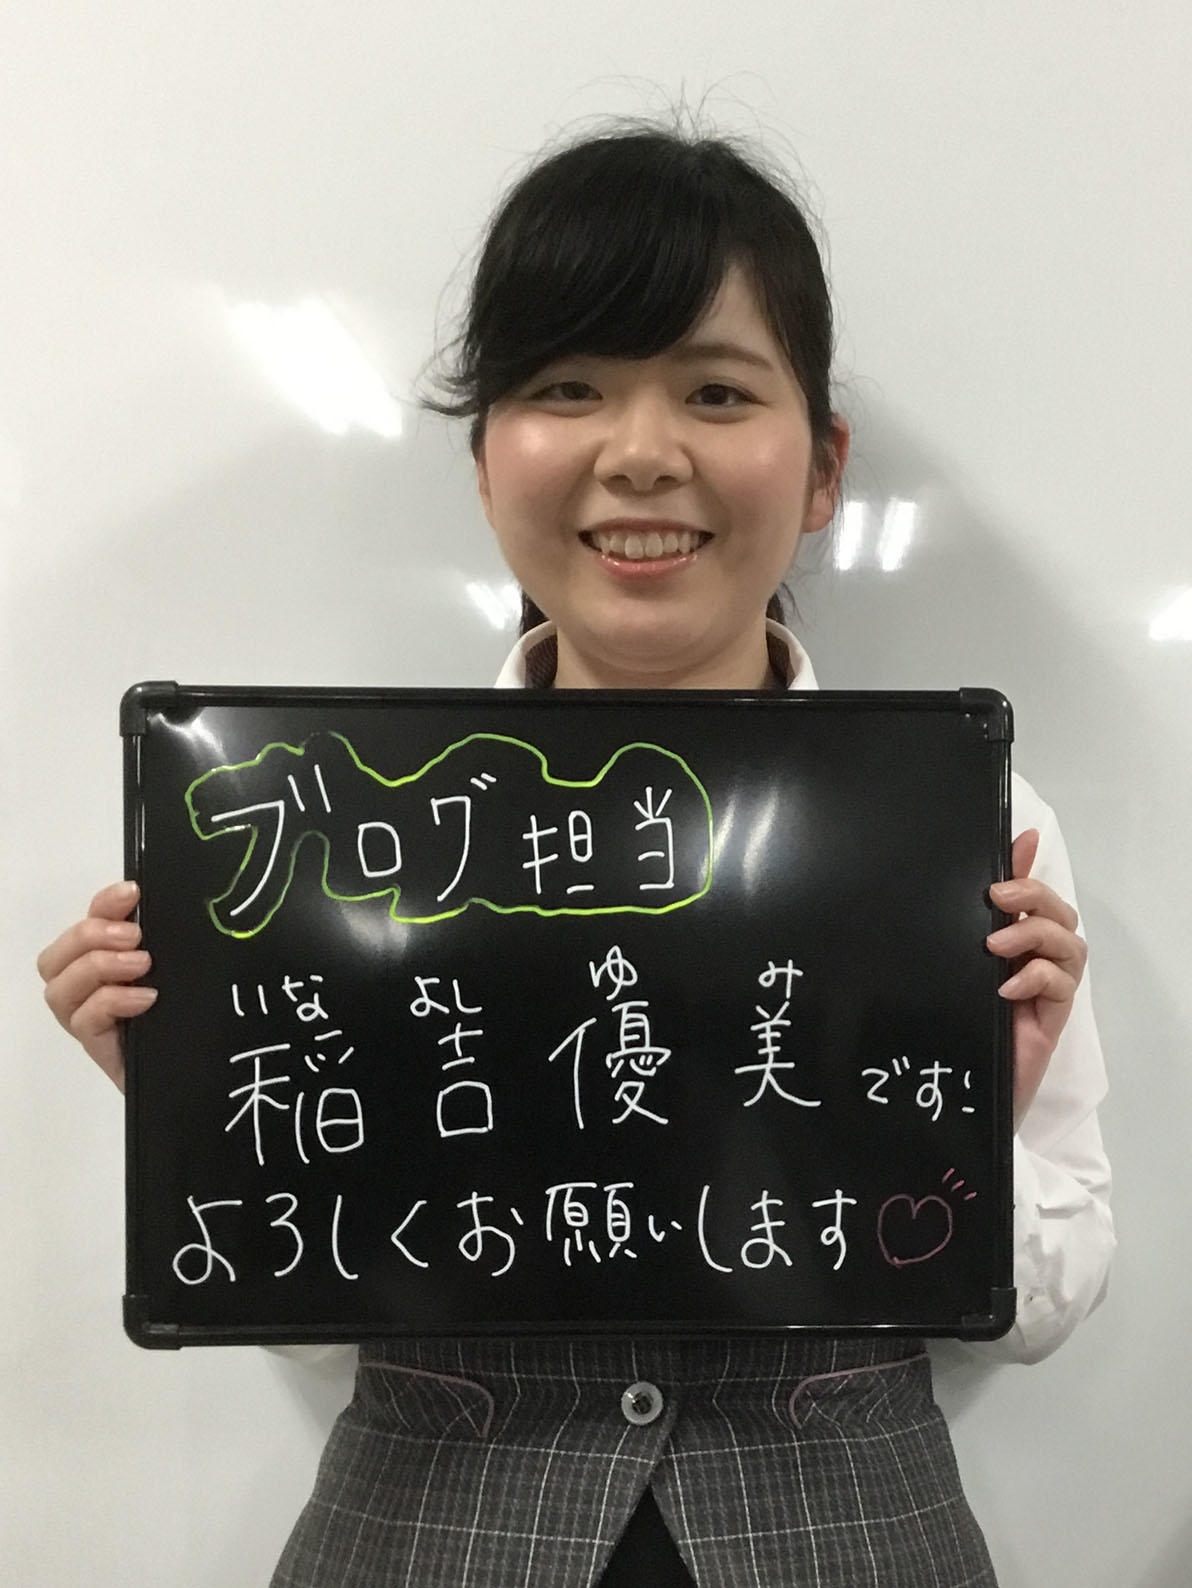 ブログ担当
いな よし ゆ み
稲吉優美です!
よろしくお願いします♡